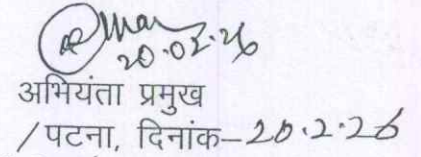 20.02.26
अभियंता प्रमुख
/पटना, दिनांक-20.2.26